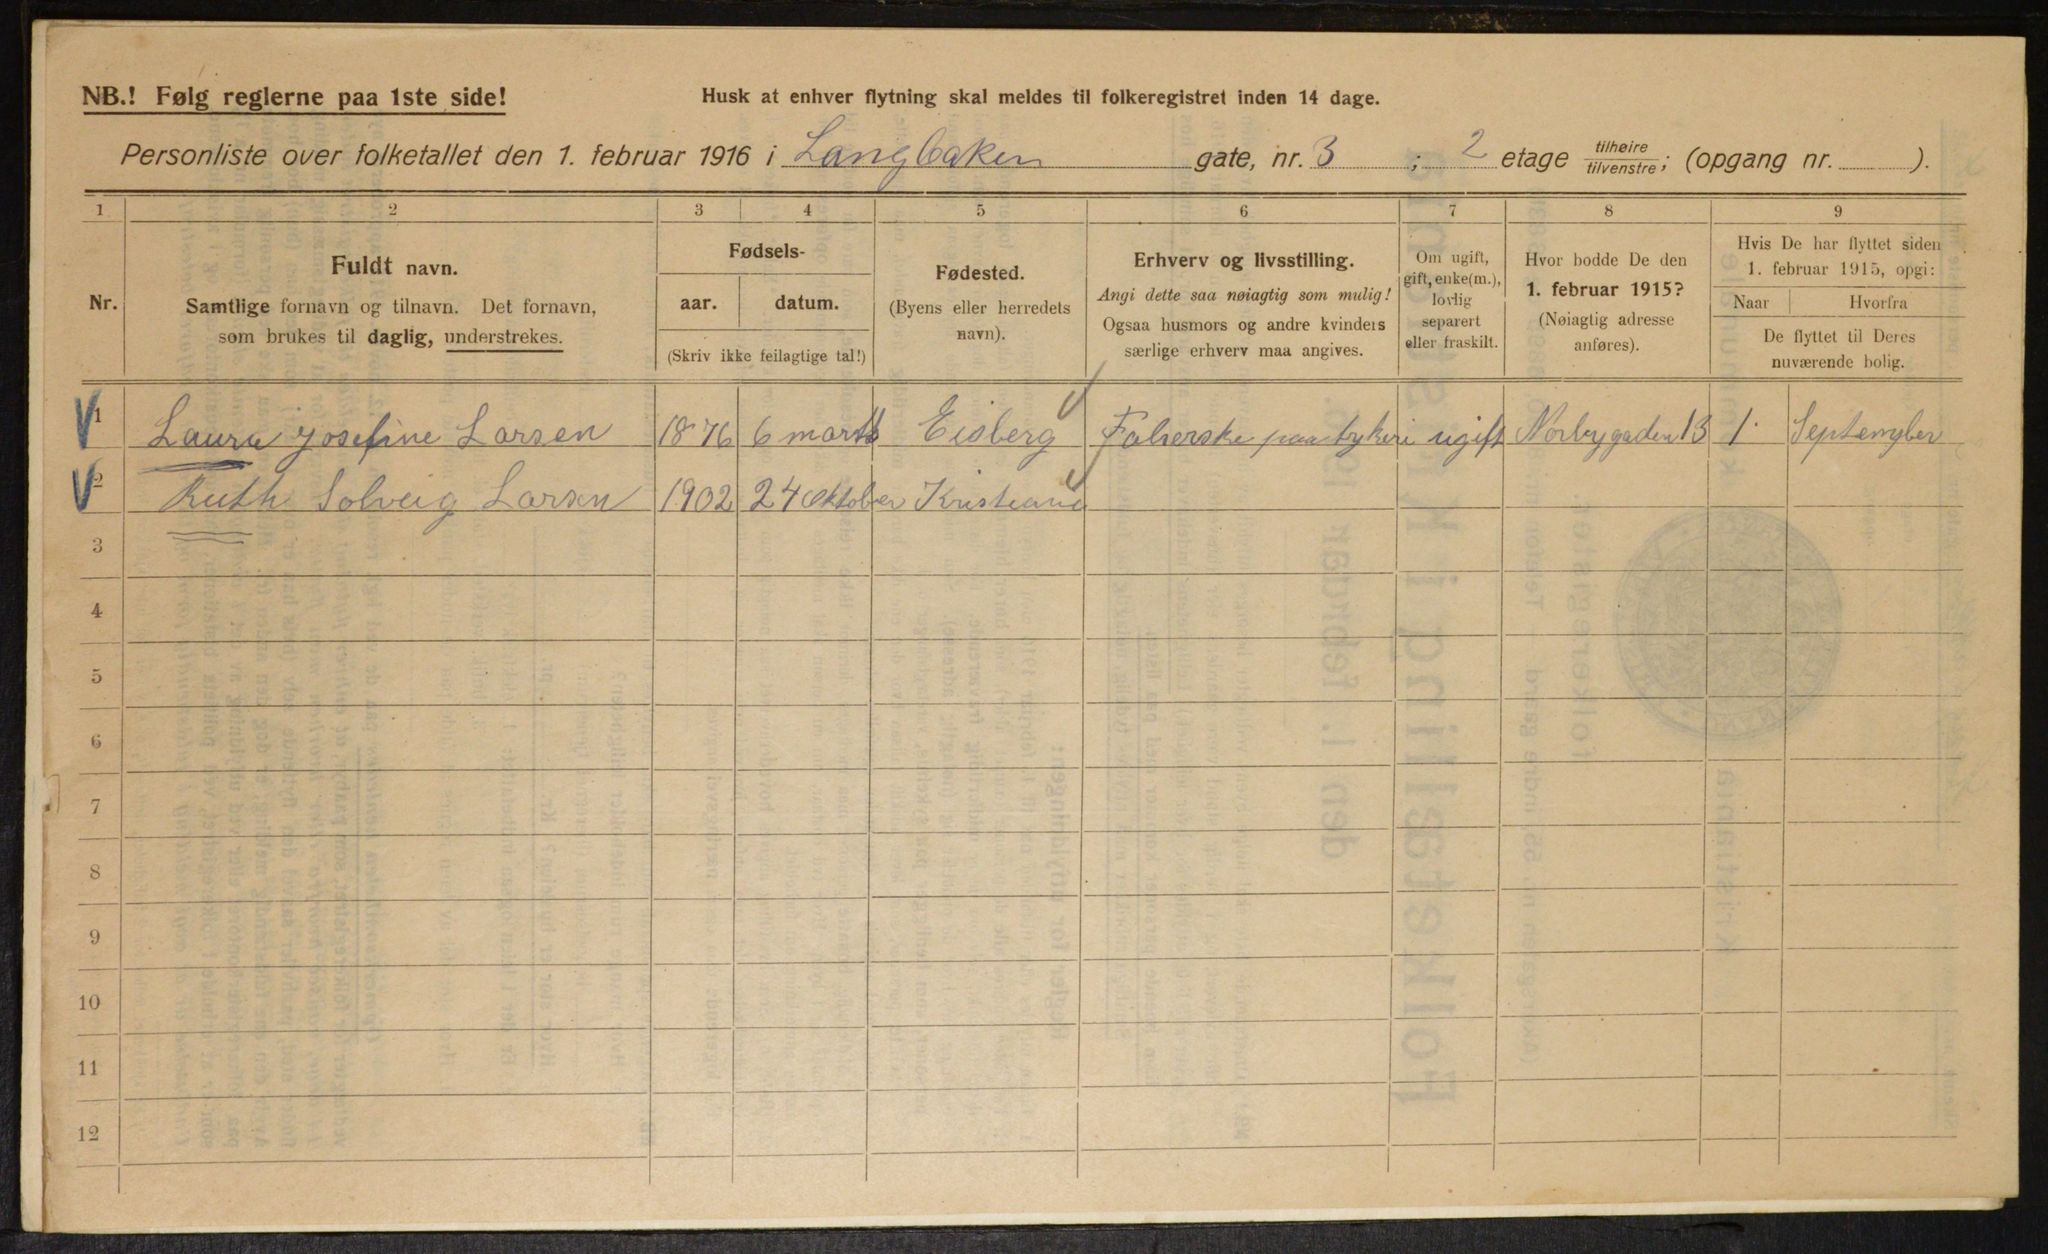 NB.! Følg reglerne paa 1ste side!
Husk at enhver flytning skal meldes til folkeregistret inden 14 dage.
Personliste over folketallet den 1. februar 1916 i Langbaken gate, nr. 3 ; 2 etage tilhøire/tilvenstre; (opgang nr. ).
1 2 3 4 5 6 7 8 9
Nr.
Fuldt navn.
Samtlige fornavn og tilnavn. Det fornavn,
som brukes til daglig, understrekes.
Fødsels-
aar. datum.
(Skriv ikke feilagtige tal!)
Fødested.
(Byens eller herredets
navn).
Erhverv og livsstilling.
Angi dette saa nøiagtig som mulig!
Ogsaa husmors og andre kvinders
særlige erhverv maa angives.
Om ugift,
gift, enke(m.),
lovlig
separert
eller fraskilt.
Hvor bodde De den
1. februar 1915?
(Nøiagtig adresse
anføres).
Hvis De har flyttet siden
1. februar 1915, opgi:
Naar Hvorfra
De flyttet til Deres
nuværende bolig.
1 Laura Josefine Larsen 1876 6 marts Eisberg Falserske paa trykeri ugift Norbygaden 13 1. September
2 Ruth Solveig Larsen 1902 24 Oktober Kristiania
3
4
5
6
7
8
9
10
11
12